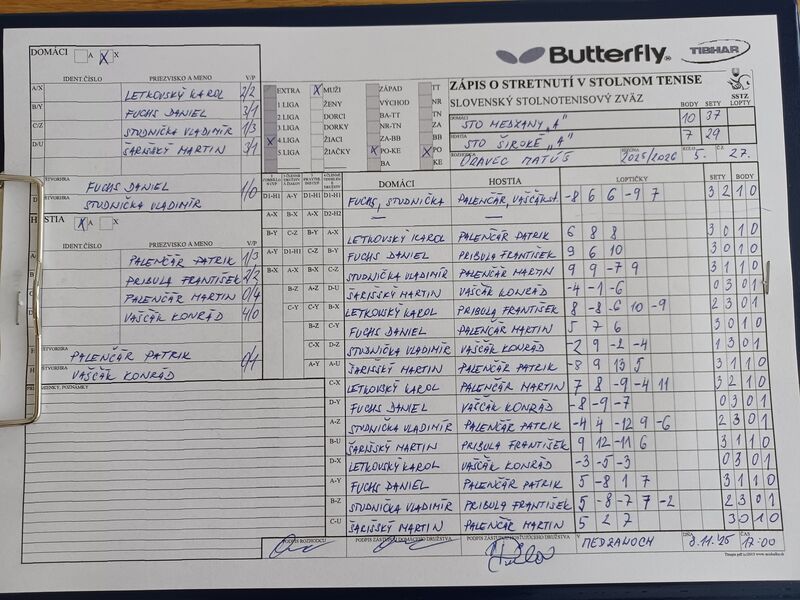 Butterfly
TIBHAR
DOMÁCI A X X
IDENT.ČÍSLO PRIEZVISKO A MENO V/P
A/X LETKOVSKÝ KAROL 2/2
B/Y FUCHS DANIEL 3/1
C/Z STUDNIČKA VLADIMÍR 1/3
D/U ŠARIŠSKÝ MARTIN 3/1
ŠTVORHRA FUCHS DANIEL 1/0
STUDNIČKA VLADIMÍR
HOSTIA X A X
IDENT.ČÍSLO PRIEZVISKO A MENO V/P
PALENČÁŘ PATRIK 1/3
PRIBULA FRANTIŠEK 2/2
PALENČÁŘ MARTIN 0/4
VAŠČÁK KONRÁD 4/0
ŠTVORHRA
PALENČÁŘ PATRIK 0/1
VAŠČÁK KONRÁD
POZNÁMKY
EXTRA X MUŽI ZÁPAD TT
1 LIGA ŽENY VÝCHOD NR
2 LIGA DORCI BA-TT TN
3 LIGA DORKY NR-TN ZA
X 4 LIGA ŽIACI ZA-BB BB
5 LIGA ŽIAČKY X PO-KE X PO
BA KE
ZÁPIS O STRETNUTÍ V STOLNOM TENISE
SLOVENSKÝ STOLNOTENISOVÝ ZVÄZ
SSTZ
BODY SETY LOPTY
DOMÁCI STO MEDZANY "A" 10 37
HOSTIA STO ŠIROKÉ "A" 7 29
ROZHODCA URAVEC MATÚŠ SEZÓNA 2025/2026 KOLO 5. Č.Z. 27.
DOMÁCI HOSTIA LOPTIČKY SETY BODY
D1-H1 FUCHS, STUDNIČKA PALENČÁŘ, VAŠČÁK -8 6 6 -9 7 3 2 1 0
D2-H2 — —
A-X LETKOVSKÝ KAROL PALENČÁŘ PATRIK 6 8 8 3 0 1 0
B-Y FUCHS DANIEL PRIBULA FRANTIŠEK 9 6 10 3 0 1 0
C-Z STUDNIČKA VLADIMÍR PALENČÁŘ MARTIN 9 9 -7 9 3 1 1 0
D-U ŠARIŠSKÝ MARTIN VAŠČÁK KONRÁD -4 -1 -6 0 3 0 1
A-Y LETKOVSKÝ KAROL PRIBULA FRANTIŠEK 8 -8 -6 10 -9 2 3 0 1
B-Z FUCHS DANIEL PALENČÁŘ MARTIN 5 7 6 3 0 1 0
C-U STUDNIČKA VLADIMÍR VAŠČÁK KONRÁD -2 9 -2 -4 1 3 0 1
D-X ŠARIŠSKÝ MARTIN PALENČÁŘ PATRIK -8 9 13 5 3 1 1 0
C-X LETKOVSKÝ KAROL PALENČÁŘ MARTIN 7 8 -9 -4 11 3 2 1 0
D-Y FUCHS DANIEL VAŠČÁK KONRÁD -8 -9 -7 0 3 0 1
A-Z STUDNIČKA VLADIMÍR PALENČÁŘ PATRIK -4 4 -12 9 -6 2 3 0 1
B-U ŠARIŠSKÝ MARTIN PRIBULA FRANTIŠEK 9 12 -11 6 3 1 1 0
D-X LETKOVSKÝ KAROL VAŠČÁK KONRÁD -3 -5 -3 0 3 0 1
A-Y FUCHS DANIEL PALENČÁŘ PATRIK 5 -8 1 7 3 1 1 0
B-Z STUDNIČKA VLADIMÍR PRIBULA FRANTIŠEK 5 -8 -7 7 -2 2 3 0 1
C-U ŠARIŠSKÝ MARTIN PALENČÁŘ MARTIN 5 2 7 3 0 1 0
PODPIS ROZHODCU PODPIS ZÁSTUPCU DOMÁCEHO DRUŽSTVA PODPIS ZÁSTUPCU HOSŤUJÚCEHO DRUŽSTVA V MEDZANOCH DŇA 8.11.25 ČAS 17:00